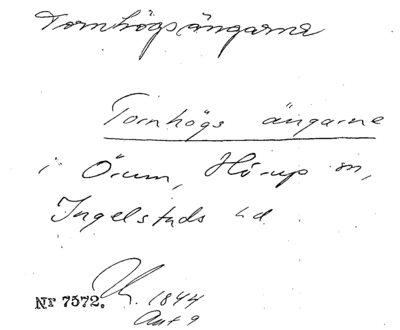 Tornhögsängarne
Tornhögs ängarne
i Örum, Hörup sn,
Ingelstads hd
Nr 7572. 1844
Akt 9